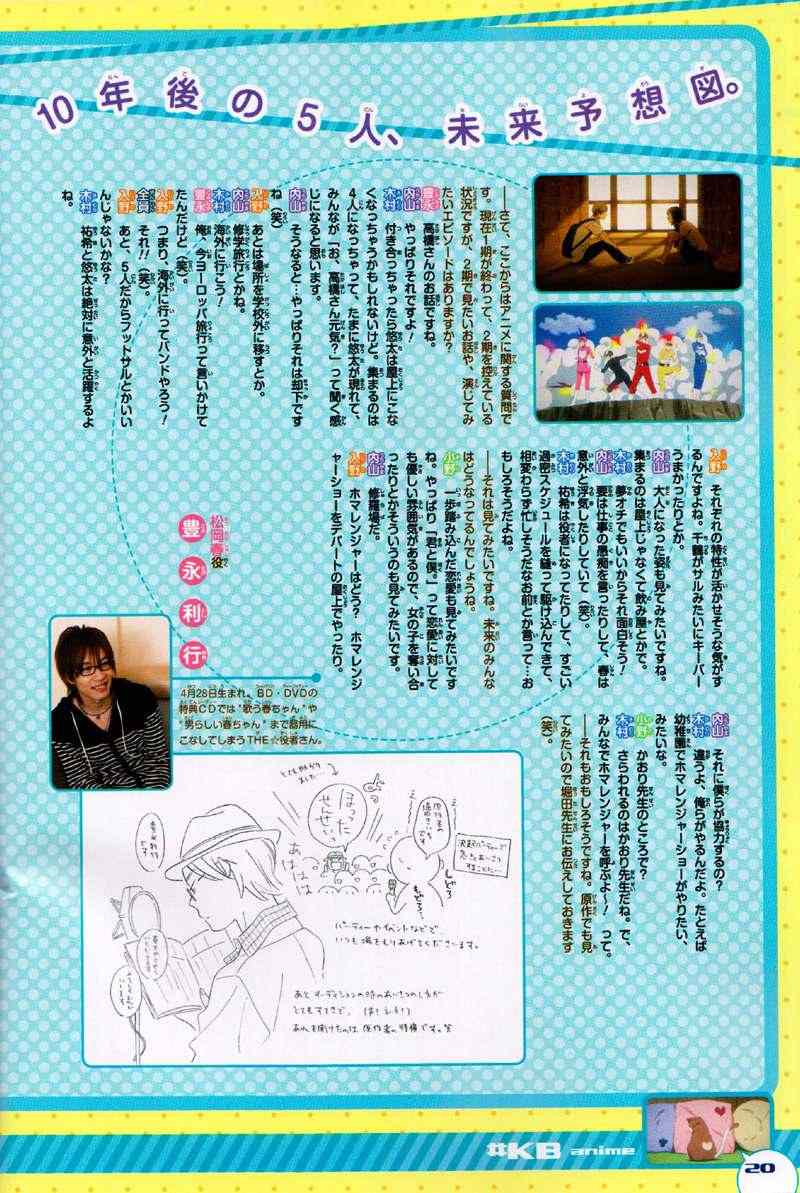 10年後の5人、未来予想図。
――さて、ここからはアニメに関する質問で
す。現在1期が終わって、2期を控えている
状況ですが、2期で見たいお話や、演じてみ
たいエピソードはありますか?
豊永 高橋さんのお話ですね。
内山 やっぱりそれですよ!
木村 付き合っちゃったら悠太は屋上にこな
くなっちゃうかもしれないけど。集まるのは
4人になっちゃって、たまに悠太が現れて、
みんなが「お、高橋さん元気?」って聞く感
じになると思います。
内山 そうなると…やっぱりそれは却下です
ね(笑)
入野 あとは場所を学校外に移すとか。
内山 修学旅行とかね。
木村 海外に行こう!
豊永 俺、今ヨーロッパ旅行って言いかけて
たんだけど(笑)。
入野 つまり、海外に行ってバンドやろう!
全員 それ!!(笑)。
入野 あと、5人だからフットサルとかいい
んじゃないかな?
木村 祐希と悠太は絶対に意外と活躍するよ
ね。
入野 それぞれの特性が活かせそうな気がす
るんですよね。千鶴がサルみたいにキーパー
うまかったりとか。
内山 大人になった姿も見てみたいですね。
集まるのは屋上じゃなくて飲み屋とかで。
木村 夢オチでもいいからそれ面白そう!
内山 要は仕事の愚痴を言ったりして、春は
意外と浮気したりしていて(笑)。
木村 祐希は役者になってたりして、すごい
過密スケジュールを縫って駆け込んできて、
相変わらず忙しそうだなお前とか言って…お
もしろそうだよね。
――それは見てみたいですね。未来のみんな
はどうなってるんでしょうね。
小野 一歩踏み込んだ恋愛も見てみたいです
ね。やっぱり「君と僕。」って恋愛に対して
も優しい雰囲気があるので、女の子を奪い合
ったりとかそういうのも見てみたいです。
内山 修羅場だ。
入野 ホマレンジャーはどう? ホマレンジ
ャーショーをデパートの屋上でやったり。
内山 それに僕らが協力するの?
木村 違うよ、俺らがやるんだよ。たとえば
幼稚園でホマレンジャーショーがやりたい、
みたいな。
小野 かおり先生のところで?
木村 さらわれるのはかおり先生だね。で、
みんなでホマレンジャーを呼ぶよ~! って。
――それもおもしろそうですね。原作でも見
てみたいので堀田先生にお伝えしておきます
(笑)。
松岡春役
豊永利行
4月28日生まれ。BD・DVDの
特典CDでは"歌う春ちゃん"や
"男らしい春ちゃん"まで器用に
こなしてしまうTHE☆役者さん。
ほったせんせぃ
あはははは
しどろ
もどろ
パーティーやイベントなどで
いつも場をもりあげてくださいます。
あと オーディションの時のあいさつのしかたが
とてもすてきで、
あれを聞けたのは 原作者の特権です。笑
#KB anime
20